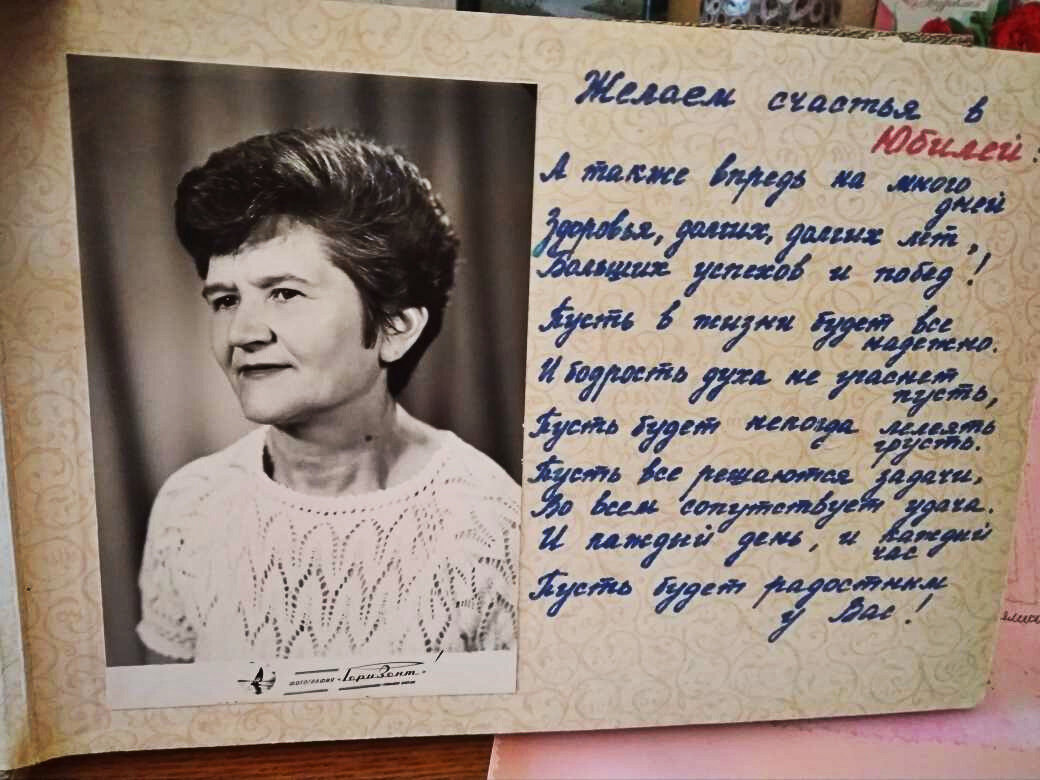 Желаем счастья в
Юбилей:
А также впредь на много
дней
Здоровья, долгих, долгих лет,
Больших успехов и побед!
Пусть в жизни будет все
надежно.
И бодрость духа не угаснет
пусть,
Пусть будет некогда лелеять
грусть.
Пусть все решаются задачи,
Во всем сопутствует удача.
И каждый день, и каждый
час
Пусть будет радостным
у Вас!
фотография «Горизонт»